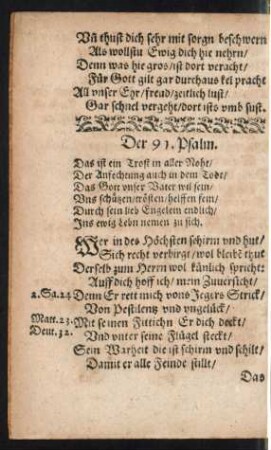 Vñ thust dich sehr mit sorgn beschwern
Als wollstu Ewig dich hie nehrn/
Denn was hie gros/ist dort veracht/
Für Gott gilt gar durchaus kel pracht
All vnser Eyr/freud/zeitlich lust/
Gar schnel vergeht/dort ists vmb sust.
Der 91. Psalm.
Das ist ein Trost in aller Noht/
Der Anfechtung auch in dem Todt/
Das Gott vnser Vater wil sein/
Vns schützen/trösten/helffen sein/
Durch sein lieb Engelein endlich/
Ins ewig Lebn nemen zu sich.
Wer in des Höchsten schirm vnd hut/
Sich recht verbirgt/wol bleibt thut
Derselb zum Herrn wol künlich spricht:
Auff dich hoff ich/mein Zuuersicht/
2. Sa. 24 Denn Er rett mich vons Jegers Strick/
Von Pestilentz vnd vnglück/
Matt. 23. Mit seinen Fittichn Er dich deckt/
Deut. 32. Vnd vnter seine Flügel steckt/
Sein Warheit die ist schirm vnd schilt/
Damit er alle Feinde stillt/
Das